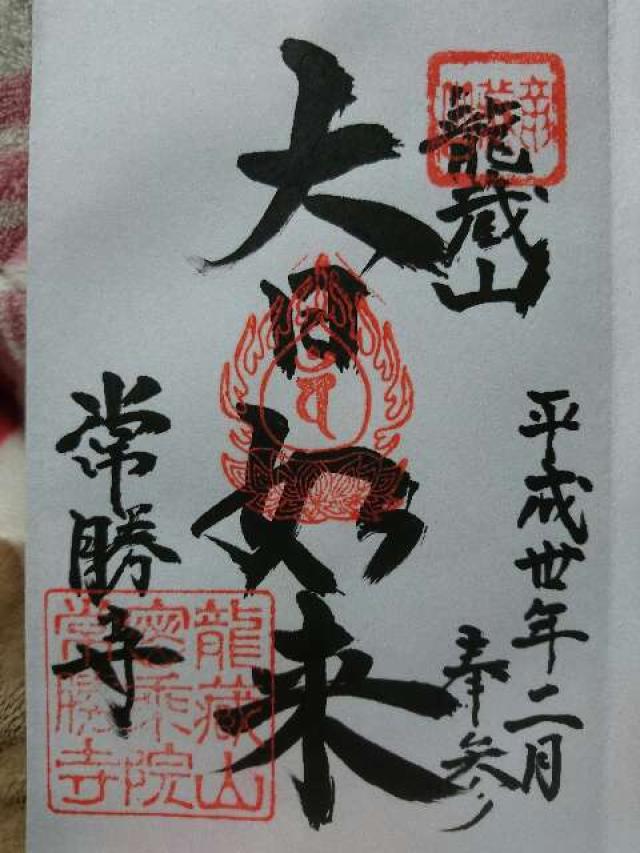 龍蔵山
平成丗年二月
奉参り
大日如来
常勝寺
龍蔵山
密乗院
常勝寺